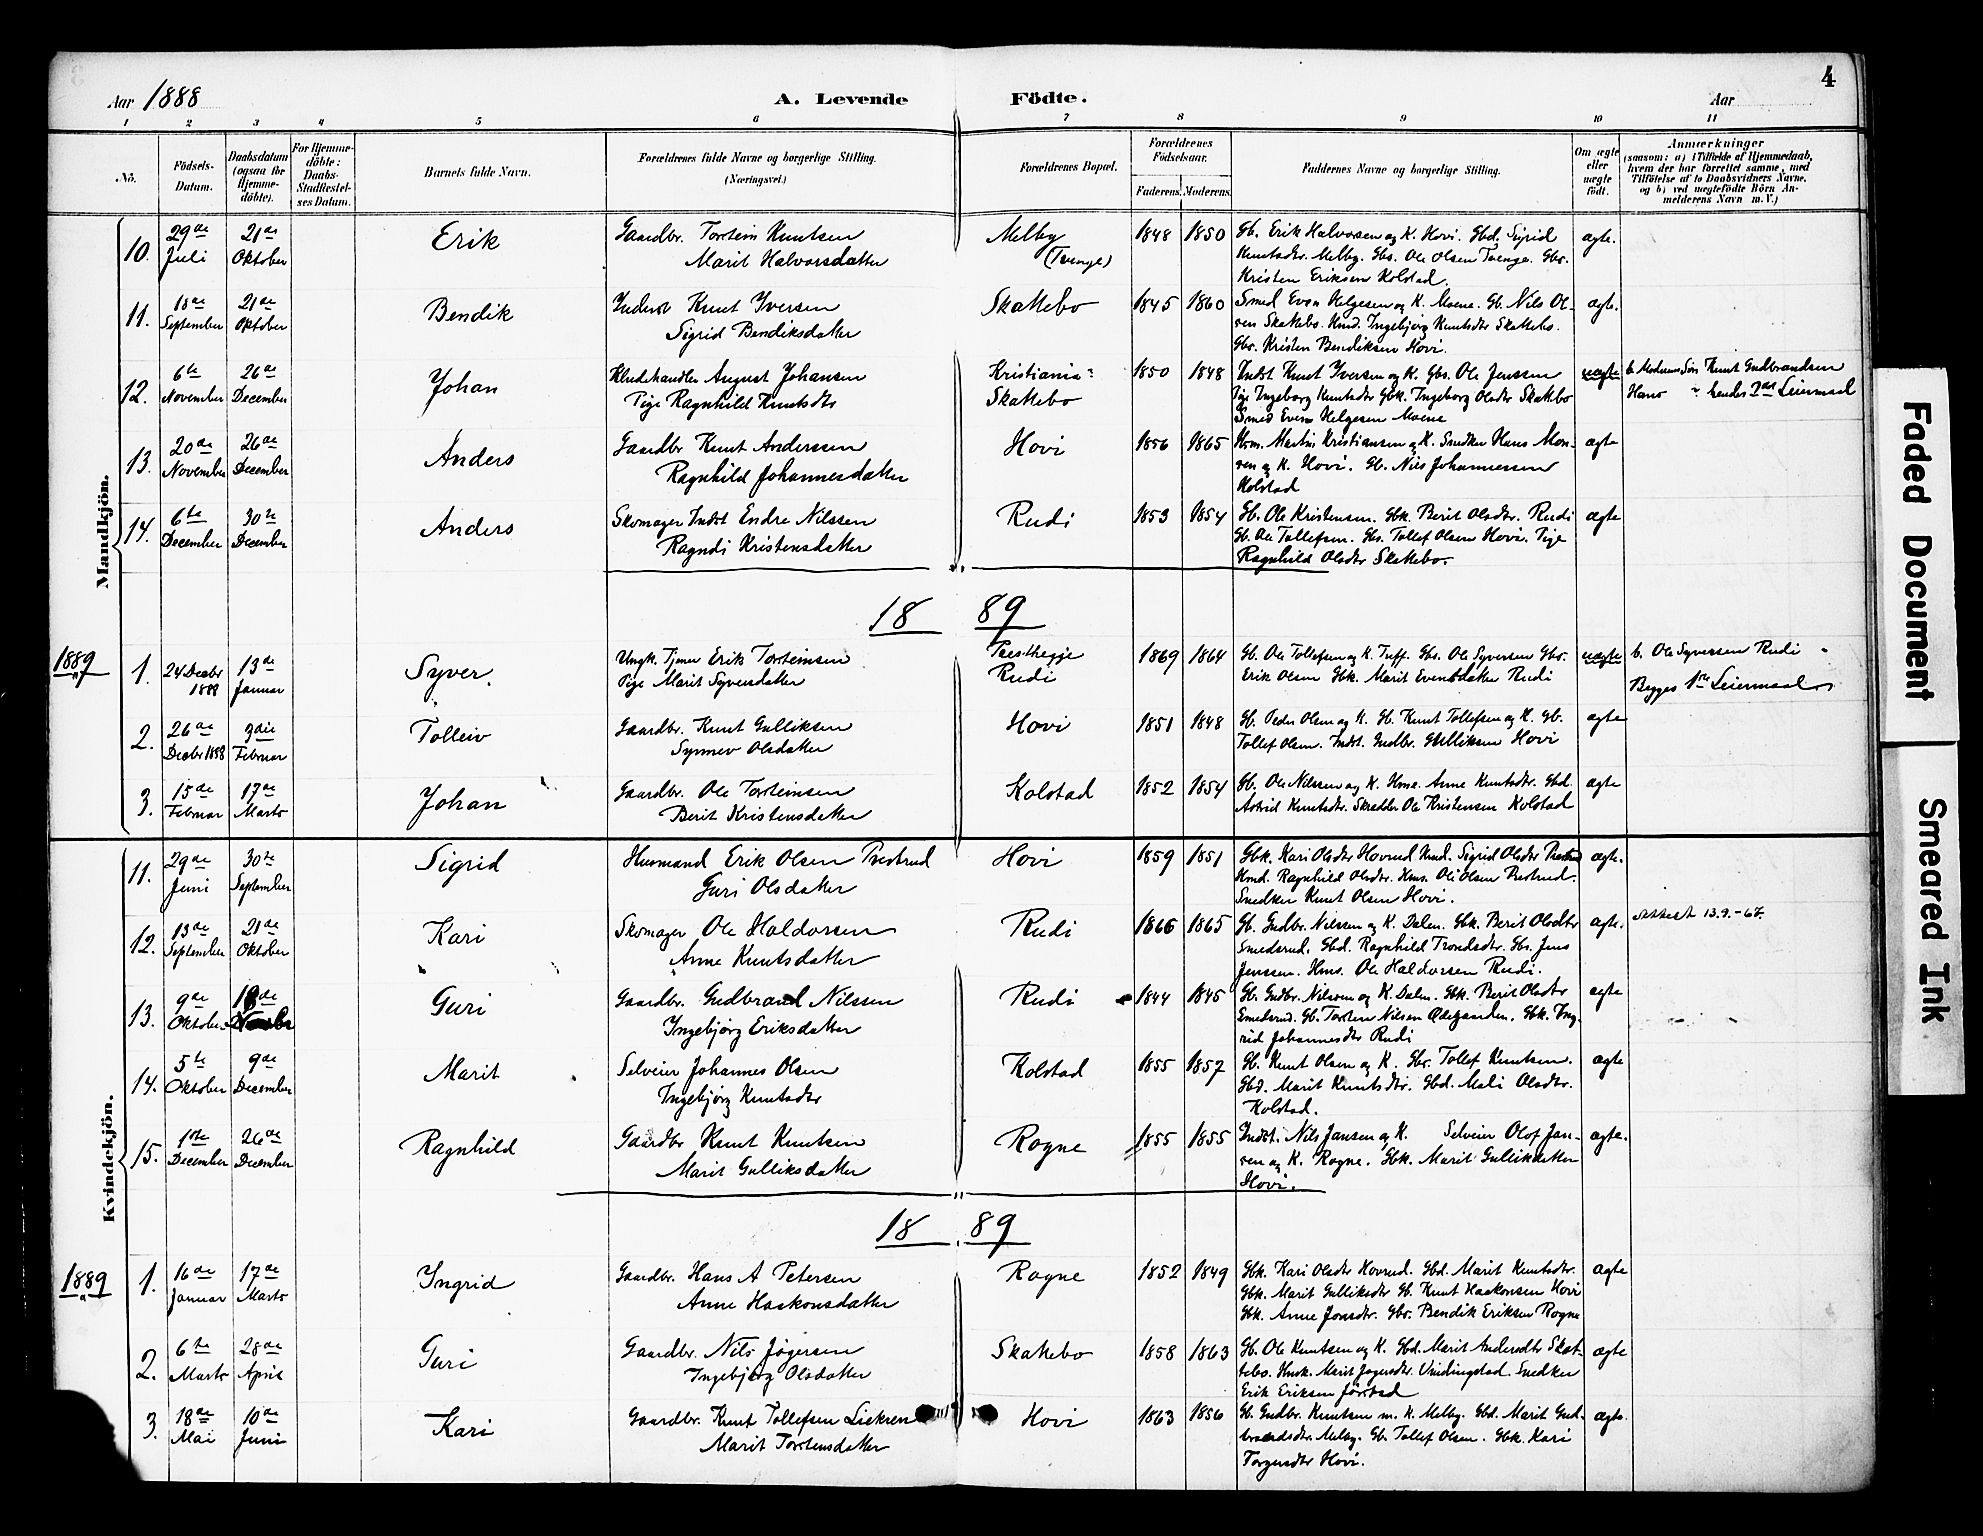 4
Aar 1888
A. Levende Födte.
Aar
1 2 3 4 5 6 7 8 9 10 11
No.
Födsels-Datum.
Daabsdatum (ogsaa for Hjemme-döbte).
For Hjemme-döbte: Daabs-Stadfæstel-ses Datum.
Barnets fulde Navn.
Forældrenes fulde Navne og borgerlige Stilling. (Næringsvei.)
Forældrenes Bopæl.
Forældrenes Födselsaar.
Faderens. Moderens.
Faddernes Navne og borgerlige Stilling.
Om ægte eller uægte födt.
Anmærkninger
(saasom: a) i Tilfælde af Hjemmedaab, hvem der har forrettet samme, med Tilföielse af to Daabsvidners Navne, og b) ved uægtefödte Börn An-melderens Navn m. V.)
Mandkjön.
10. 29de Juli 21de Oktober Erik Gaardbr. Torstein Knutsen Melby 1848 1850 Gb. Erik Halvorsen og K. Hovi. Gbd. Sigrid ægte.
Marit Halvorsdatter (Tvenge) Knutsdtr. Melby. Gbs. Ole Olsen Tvenge. Gbs.
Kristen Eriksen Kolstad.
11. 18de September 21de Oktober Bendik Inderst Knut Iversen Skattebo 1845 1860 Smed Even Helgesen og K. Moene. Gb. Nils Ol- ægte.
Sigrid Bendiksdatter sen Skattebo. Kmd. Ingebjörg Knutsdtr Skattebo.
Gbs. Kristen Bendiksen Hovi.
12. 6te November 26de December Johan Kludehandler August Johansen Kristiania 1850 1848 Indst Knut Iversen og K. Gbs. Ole Jenssen uægte b. Moderens Sön Knut Gudbrandsen
Pige Ragnhild Knutsdtr Skattebo Pige Ingeborg Knutsdtr Gbk. Ingeborg Olsdtr Skattebo Hans hendes 2det Leiermaal
Smed Even Helgesen Moene
13. 20de November 26de December Anders Gaardbr Knut Anderssen Hovi 1856 1865 Hsm. Martin Kristiansen og K. Snedker Hans Mon- ægte
Ragnhild Johannesdatter sen og K. Hovi. Gb. Nils Johannessen
Kolstad
14. 6te December 30te December Anders Skomager Indst Endre Nilssen Rudi 1853 1854 Gb. Ole Kristensen. Gbk. Berit Olsdtr. Rudi ægte
Ragndi Kristensdatter Gb. Ole Tollefsen. Gbs. Tollef Olsen Hovi. Pige
Ragnhild Olsdtr Skattebo.
18 89
1889 1. 24 Decbr 1888 13de Januar Syver. Ungk. Tjener Erik Torsteinsen Præsthegge 1869 1864 Gb. Ole Tollefsen og K. Tuff. Gbs. Ole Syversen Gbs. uægte b. Ole Syversen Rudi
Pige Marit Syversdatter Rudi Erik Olsen Gbk. Marit Evensdatter Rudi Begges 1ste Leiermaal
2. 26de Decbr 1888 3die Februar Tolleiv Gaardbr. Knut Gulliksen Hovi 1851 1848 Gb. Peder Olsen og K. Gb. Knut Tollefsen og K. Gb. ægte
Synnev Olsdatter Tollef Olsen. Indst. Gudbr. Gulliksen Hovi
3. 15de Februar 17de Marts Johan Gaardbr. Ole Torsteinsen Kolstad 1852 1854 Gb. Ole Nilssen og K. Hmk. Anne Knutsdtr. Gbd. ægte
Berit Kristensdatter Astrid Knutsdtr. Skrædder Ole Kristensen Kolstad
Kvindekjön.
11. 29de Juni 30te September Sigrid Husmand Erik Olsen Prestrud Hovi 1859 1851 Gbk. Kari Olsdtr Hovrud Kmd. Sigrid Olsdtr Prestrud ægte.
Guri Olsdatter Hmd. Ragnhild Olsdtr. Hms. Ole Olsen Prestrud.
Snedker Knut Olsen Hovi.
12. 13de September 21de Oktober Kari Skomager Ole Haldorsen Rudi 1866 1865 Gb. Gudbr. Nilssen og K. Dalen. Gbk. Berit Olsdtr ægte. Attest 13.9.-67.
Anne Knutsdatter Smedsrud. Gbd. Ragnhild Trondsdtr. Gbs. Jens
Jenssen. Hms. Ole Haldorsen Rudi.
13. 9de Oktober Guri Gaardbr. Gudbrand Nilssen Rudi 1844 1845 Gb. Gudbr. Nilssen og K Dalen. Gbk. Berit Olsdtr ægte
Ingebjörg Eriksdatter Smedsrud. Gb. Torsten Nilsen Ödegaarden. Gbk. Ing-
rid Johannesdtr Rudi
14. 5te Oktober 9de December Marit Selveier Johannes Olsen Kolstad 1855 1857 Gb. Knut Olsen og K. Gbs. Tollef Knutsen. ægte
Ingebjörg Knutsdtr Gbd. Marit Knutsdtr. Gbd. Mali Olsdtr.
Kolstad.
15. 1ste December 26de December Ragnhild Gaardbr Knut Knutsen Rogne 1855 1855 Indst. Nils Jansen og K. Selveier Olof Jan- ægte.
Marit Gulliksdatter sen og K. Rogne. Gbk. Marit Gulliksdatter
Hovi.
18 89
1889 1. 16de Januar 17de Marts Ingrid Gaardbr. Hans A Petersen Rogne 1852 1849 Gbk. Kari Olsdtr Hovrud. Gbd. Marit Knutsdtr. ægte
Anne Haakonsdatter Gbk. Marit Gulliksdtr Gb. Knut Haakonsen Hovi
Gbk. Anne Jonsdtr. Gbs. Bendik Eriksen Rogne
2. 6te Marts 28de April Guri Gaardbr. Nils Jögersen Skattebo 1858 1863 Gb. Ole Knutsen og K. Gbd. Marit Andersdtr Skat- ægte
Ingebjörg Olsdatter tebo. Hmk. Marit Jögersdtr Undingstad. Snedker
Erik Eriksen Jörstad
3. 18de Mai 10de Juni Kari Gaardbr. Knut Tollefsen Liekren Hovi 1863 1856 Gb. Gudbr. Knutsen m. K. Melby. Gbd. Marit Gud- ægte.
Marit Torstensdatter brandsdtr. Melby. Gb. Tollef Olsen. Gbk. Kari
Torgersdtr Hovi.
Faded Document
Smeared Ink